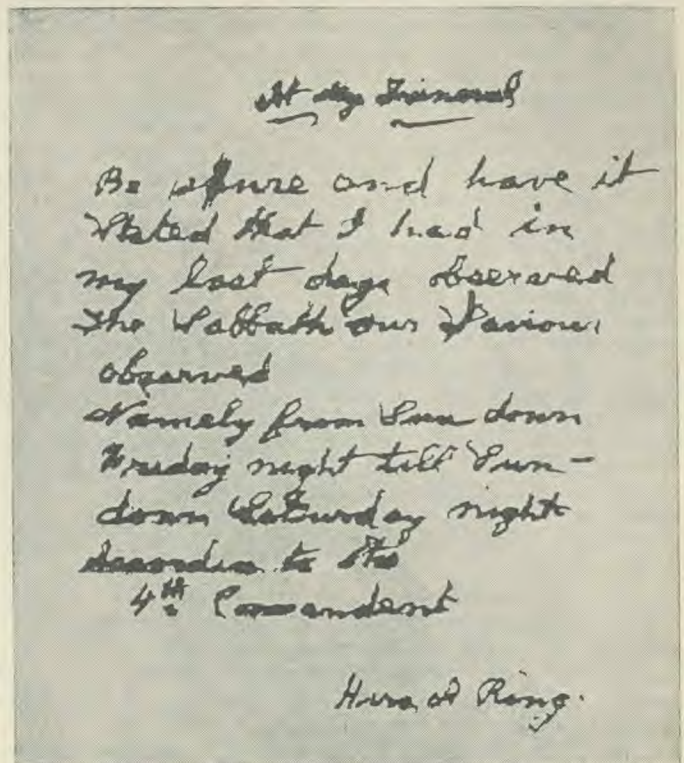 At my Funeral
Be sure and have it
Stated that I had in
my last days observed
The Sabbath our Saviour
observed
Namely from Sun down
Friday night till Sun-
down Saturday night
to the
4th Comandent
Ring.